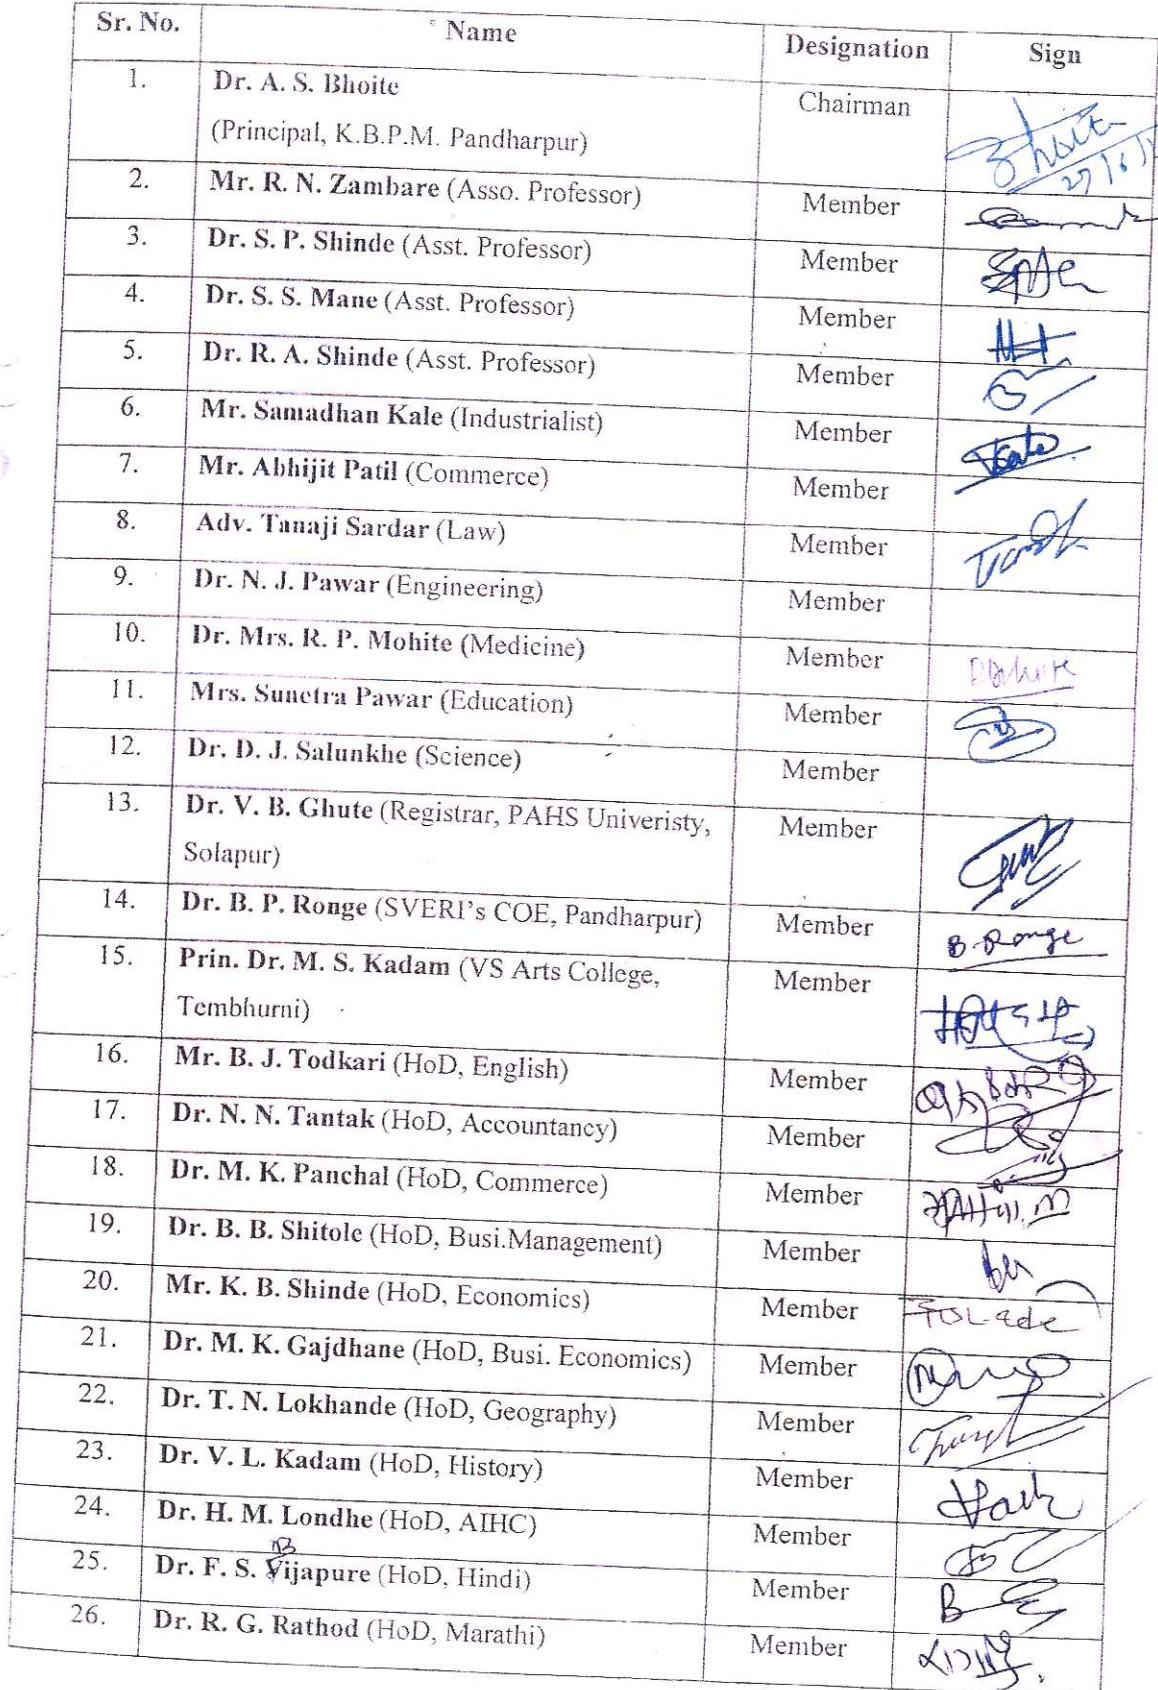 Sr. No. Name Designation Sign
1. Dr. A. S. Bhoite Chairman
(Principal, K.B.P.M. Pandharpur)
27/6/
2. Mr. R. N. Zambare (Asso. Professor) Member
3. Dr. S. P. Shinde (Asst. Professor) Member
4. Dr. S. S. Mane (Asst. Professor) Member
5. Dr. R. A. Shinde (Asst. Professor) Member
6. Mr. Samadhan Kale (Industrialist) Member
7. Mr. Abhijit Patil (Commerce) Member
8. Adv. Tanaji Sardar (Law) Member
9. Dr. N. J. Pawar (Engineering) Member
10. Dr. Mrs. R. P. Mohite (Medicine) Member
11. Mrs. Sunetra Pawar (Education) Member
12. Dr. D. J. Salunkhe (Science) Member
13. Dr. V. B. Ghute (Registrar, PAHS Univeristy, Member
Solapur)
14. Dr. B. P. Ronge (SVERI's COE, Pandharpur) Member B. Ronge
15. Prin. Dr. M. S. Kadam (VS Arts College, Member
Tembhurni)
16. Mr. B. J. Todkari (HoD, English) Member
17. Dr. N. N. Tantak (HoD, Accountancy) Member
18. Dr. M. K. Panchal (HoD, Commerce) Member
19. Dr. B. B. Shitole (HoD, Busi.Management) Member
20. Mr. K. B. Shinde (HoD, Economics) Member
21. Dr. M. K. Gajdhane (HoD, Busi. Economics) Member
22. Dr. T. N. Lokhande (HoD, Geography) Member
23. Dr. V. L. Kadam (HoD, History) Member
24. Dr. H. M. Londhe (HoD, AIHC) Member
B
25. Dr. F. S. Vijapure (HoD, Hindi) Member
26. Dr. R. G. Rathod (HoD, Marathi) Member